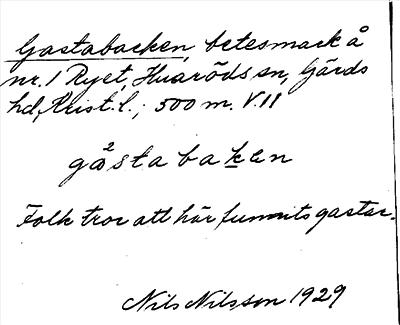 Gastabacken, betesmark å
nr. 1 Ryet, Huaröds sn, Gärds
hd, Krist. l.; 500 m. V. 11
gåstabaken
Folk tror att här funnits gastar.
Nils Nilsson 1929